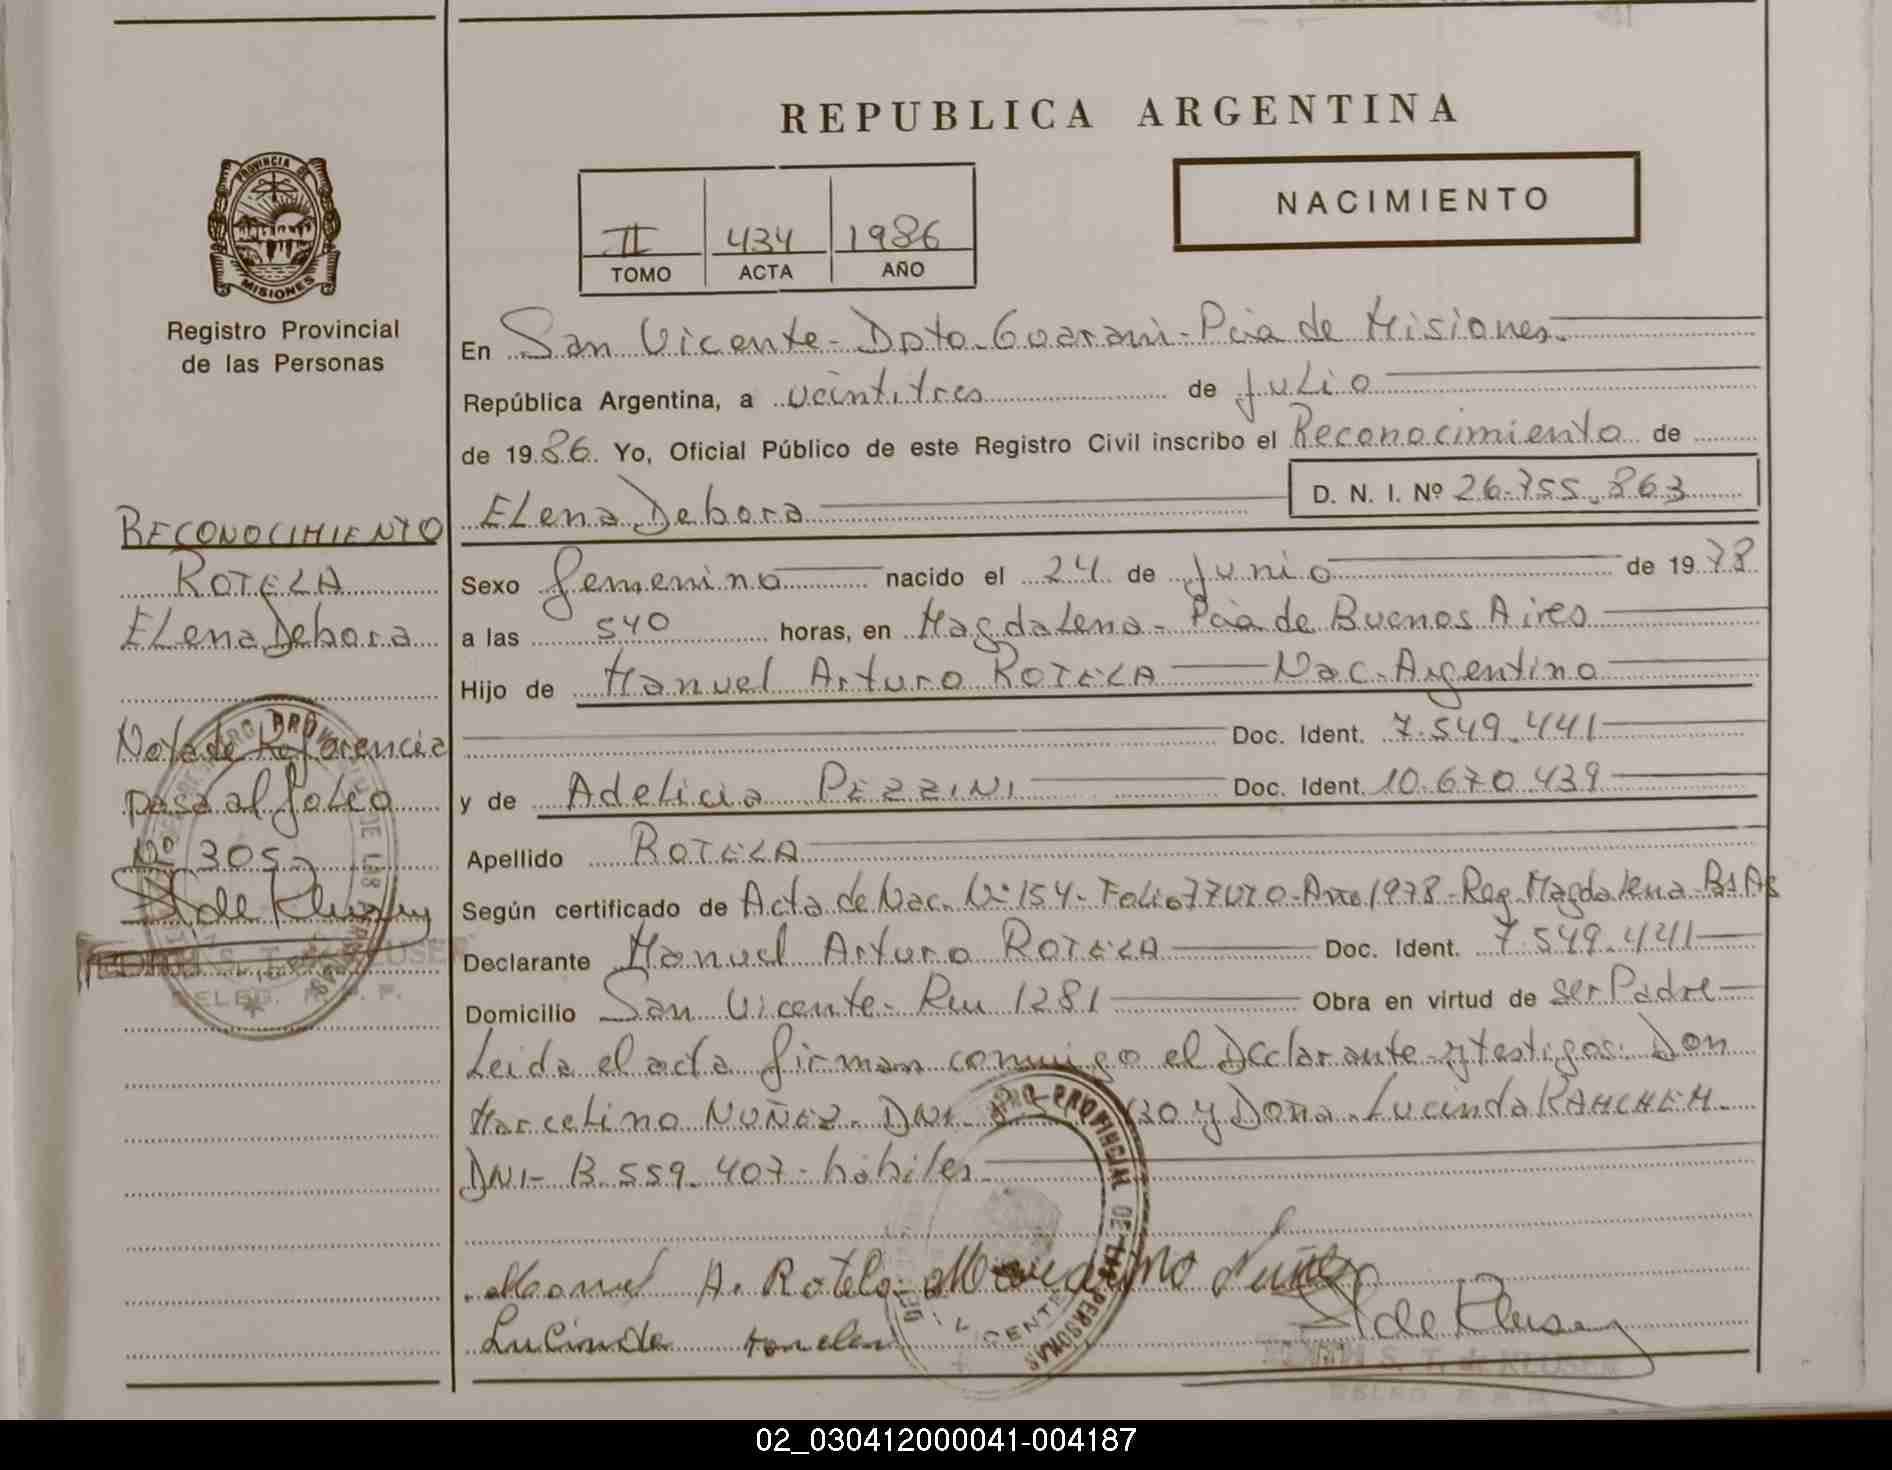 REPUBLICA ARGENTINA
PROVINCIA DE
MISIONES
Registro Provincial
de las Personas
II 434 1986
TOMO ACTA AÑO
NACIMIENTO
En San Vicente - Dpto. Guaraní - Pcia de Misiones.
República Argentina, a veintitres de Julio
de 1986. Yo, Oficial Público de este Registro Civil inscribo el Reconocimiento de
Elena Debora D. N. I. Nº 26.755.863
Sexo femenino nacido el 24 de Junio de 1978
a las 540 horas, en Magdalena - Pcia de Buenos Aires
Hijo de Manuel Arturo ROTELA Nac. Argentino
Doc. Ident. 7.549.441
y de Adelicia PEZZINI Doc. Ident. 10.670.439
Apellido ROTELA
Según certificado de Acta de Nac. Nº 154 - Folio 77 - Año 1978 - Reg. Magdalena - Bs As
Declarante Manuel Arturo ROTELA Doc. Ident. 7.549.441
Domicilio San Vicente - Ruu 1281 Obra en virtud de ser Padre
Leida el acta firman conmigo el Declarante y testigos: Don
Marcelino NUÑEZ. DNI. y Doña Lucinda
DNI - 13.559.407 - hábiles
Manuel A. Rotela Marcelino Nuñez
Lucinda
S. T. de KLUSER
RECONOCIMIENTO
ROTELA
Elena Debora
Nota de Referencia
pasa al folio
Nº 305
DELEG. R. P. P.
REGISTRO PROVINCIAL DE LAS PERSONAS
02_030412000041-004187